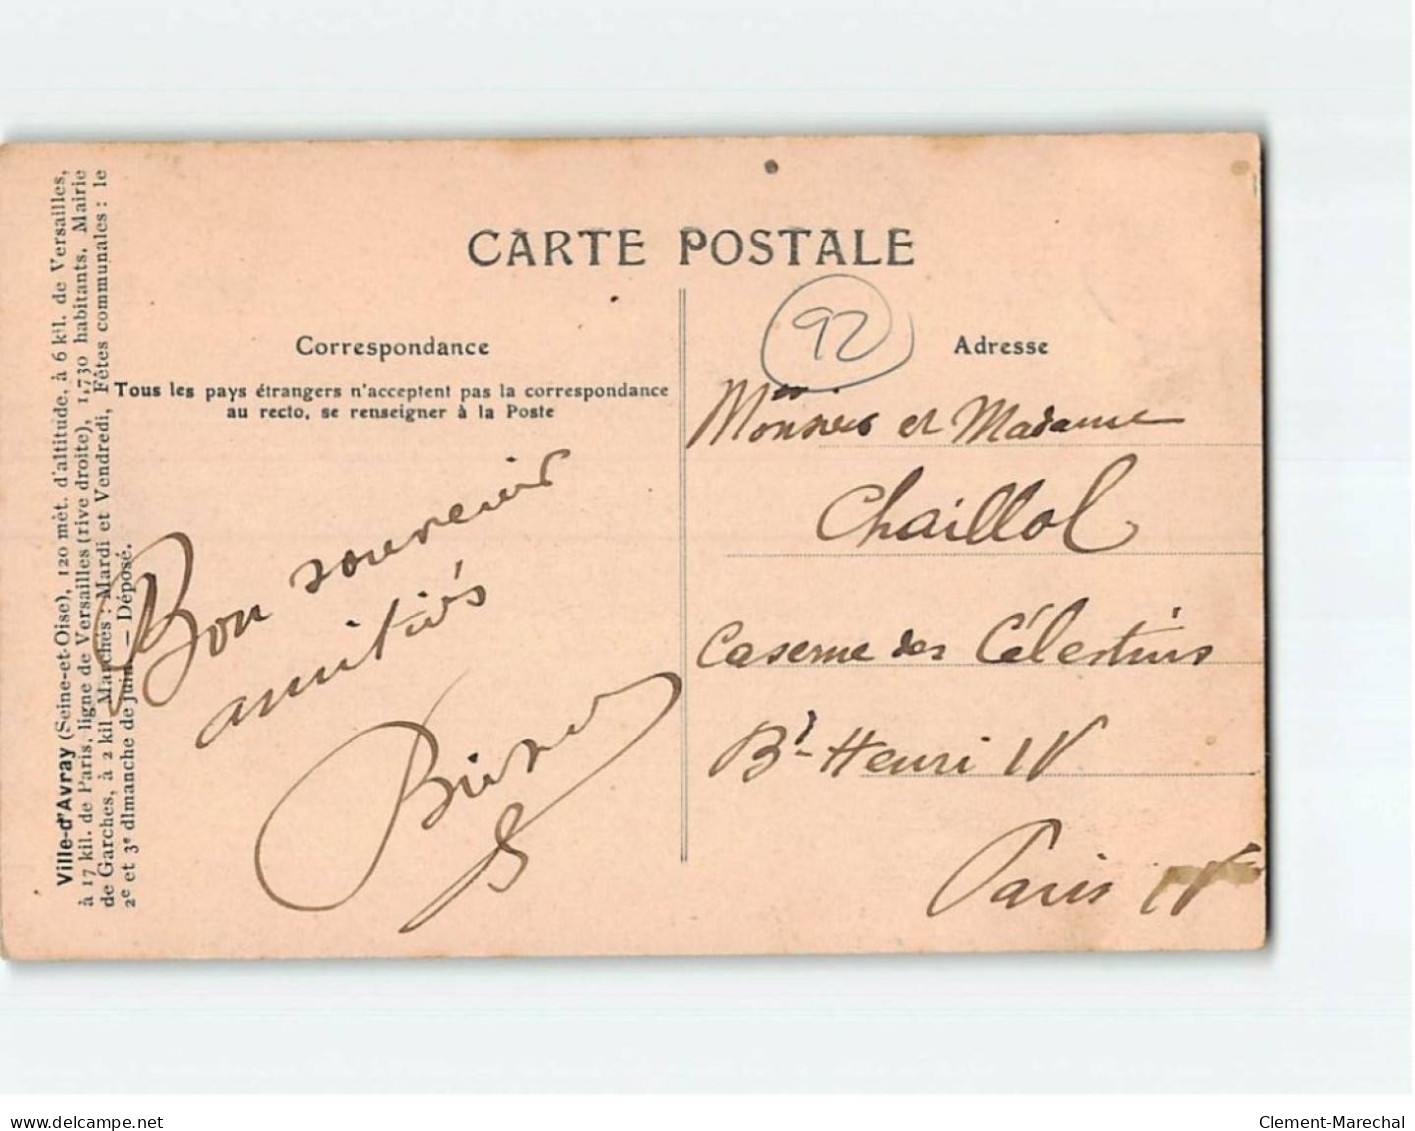 CARTE POSTALE
Correspondance
Tous les pays étrangers n'acceptent pas la correspondance
au recto, se renseigner à la Poste
Bon souvenir
amitiés
92
Adresse
et Madame
Chaillol
Caserne des Célestins
Bd Henri IV
Paris IV
Ville-d'Avray (Seine-et-Oise), 120 mèt. d'altitude, à 6 kil. de Versailles,
à 17 kil. de Paris, ligne de Versailles (rive droite), 1,730 habitants. Mairie
de Garches, à 2 kil. Marchés : Mardi et Vendredi. Fêtes communales : le
2e et 3e dimanche de juin. — Déposé.
delcampe.net
Clement-Marechal